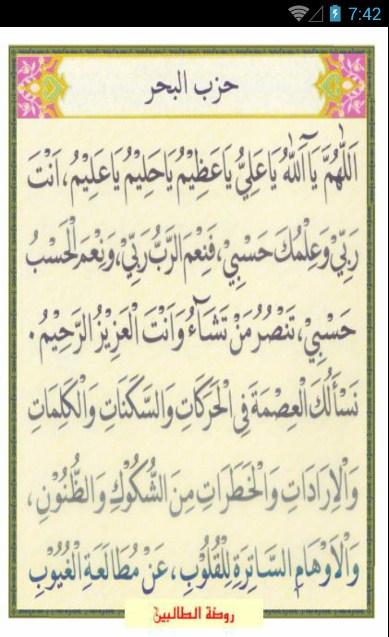 7:42
حزب البحر
اَللّٰهُمَّ يَآ اَللّٰهُ يَاعَلِيُّ يَاعَظِيْمُ يَاحَلِيْمُ يَاعَلِيْمُ، اَنْتَ
رَبِّيْ وَعِلْمُكَ حَسْبِيْ، فَنِعْمَ الرَّبُّ رَبِّيْ، وَنِعْمَ الْحَسْبُ
حَسْبِيْ، تَنْصُرُ مَنْ تَشَآءُ وَاَنْتَ الْعَزِيْزُ الرَّحِيْمُ.
نَسْأَلُكَ الْعِصْمَةَ فِي الْحَرَكَاتِ وَالسَّكَنَاتِ وَالْكَلِمَاتِ
وَالْاِرَادَاتِ وَالْخَطَرَاتِ مِنَ الشُّكُوْكِ وَالظُّنُوْنِ،
وَالْاَوْهَامِ السَّاتِرَةِ لِلْقُلُوْبِ، عَنْ مُطَالَعَةِ الْغُيُوْبِ
روضة الطالبين